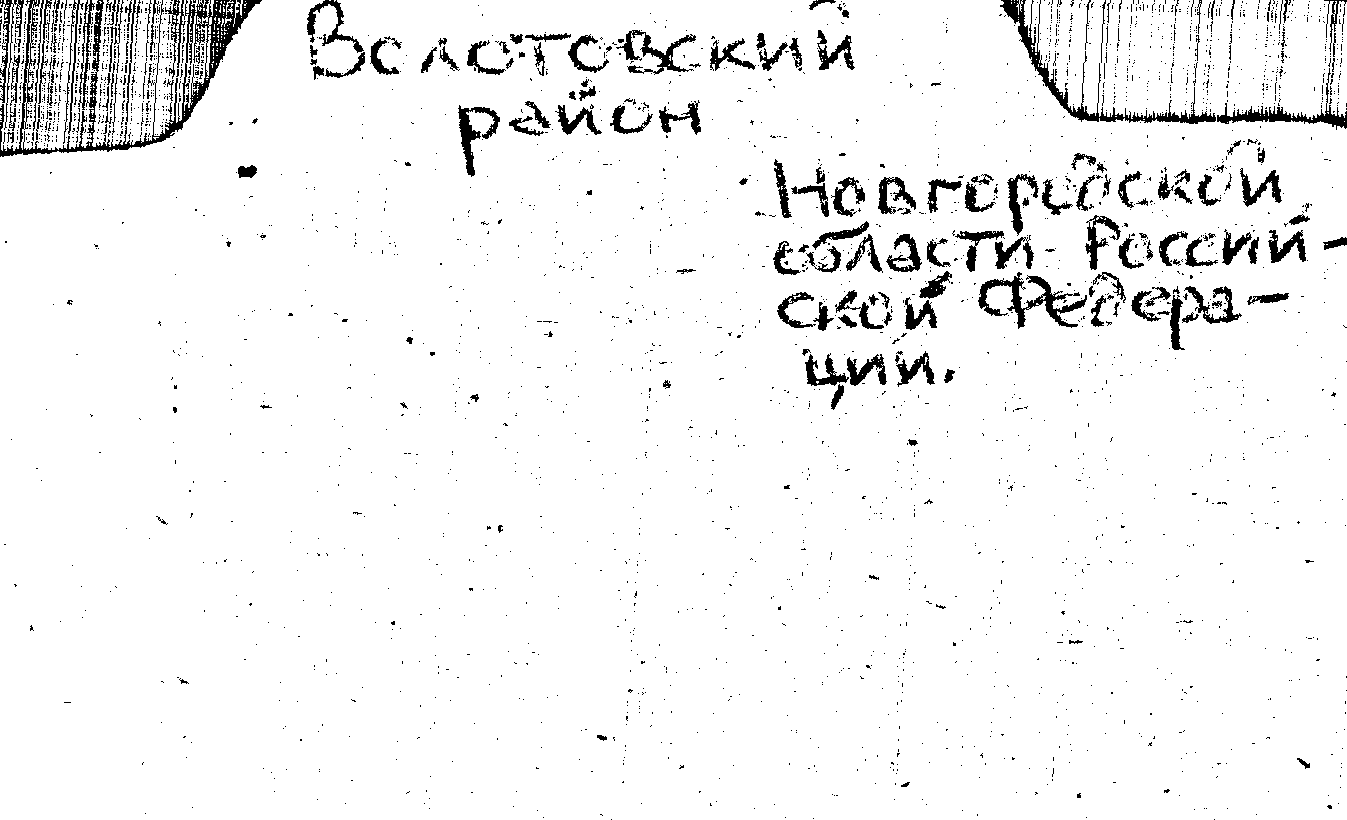 Волотовский
район
Новгородской
области Россий-
ской Федера-
ции.